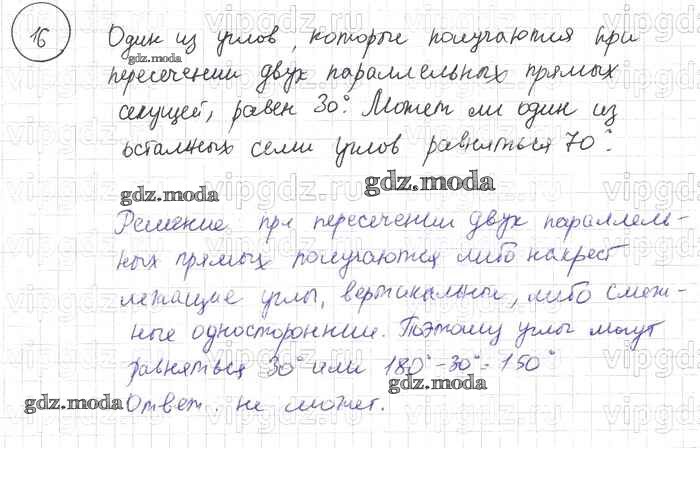 16
Один из углов, которые получаются при
gdz.moda
пересечении двух параллельных прямых
секущей, равен 30°. Может ли один из
остальных семи углов равняться 70°.
gdz.moda
gdz.moda
Решение при пересечении двух параллель-
ных прямых получаются либо накрест
лежащие углы, вертикальные, либо смеж-
ные односторонние. Поэтому углы могут
равняться 30° или 180°-30°=150°
gdz.moda
gdz.moda
Ответ. не может.